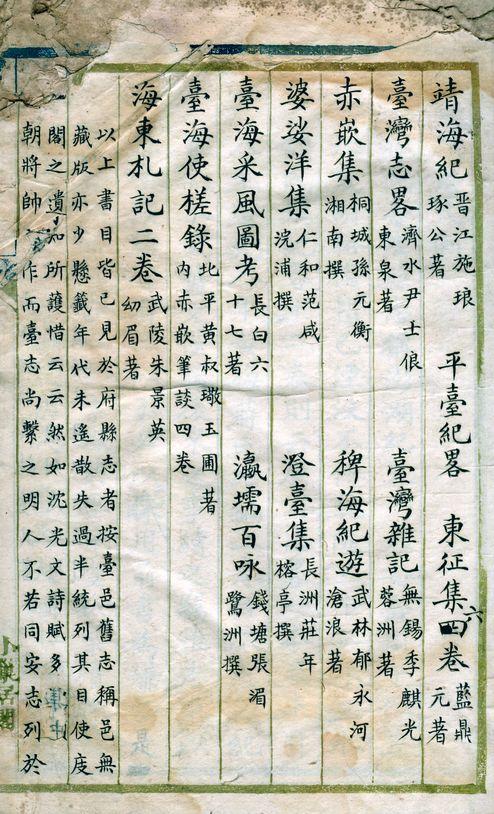 靖海紀 晋江施琅琢公著 平臺紀畧 東征集六卷 藍鼎元著
臺灣志畧 濟水尹士俍東泉著 臺灣雜記 無錫季麒光蓉洲著
赤嵌集 桐城孫元衡湘南撰 稗海紀遊 武林郁永河滄浪著
婆娑洋集 仁和范咸浣浦撰 澄臺集 長洲莊年榕亭撰
臺海采風圖考 長白六十七著 瀛壖百咏 錢塘張湄鷺洲撰
臺海使槎錄 北平黃叔璥玉圃著 內赤嵌筆談四卷
海東札記二卷 武陵朱景英幼眉著
以上書目皆已見於府縣志者按臺邑舊志稱邑無
藏版亦少懸籤年代未遥散失過半統列其目使庋
閣之遺知所護惜云云然如沈光文詩賦多
朝將帥作而臺志尚繫之明人不若同安志列於